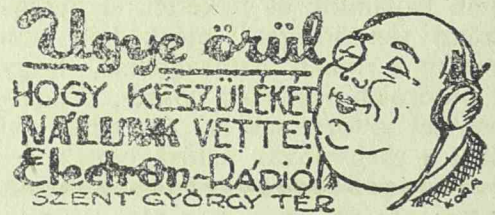 Ugye örül
HOGY KÉSZÜLÉKET
NÁLUNK VETTE!
Electron-RÁDIÓ
SZENT GYÖRGY TÉR